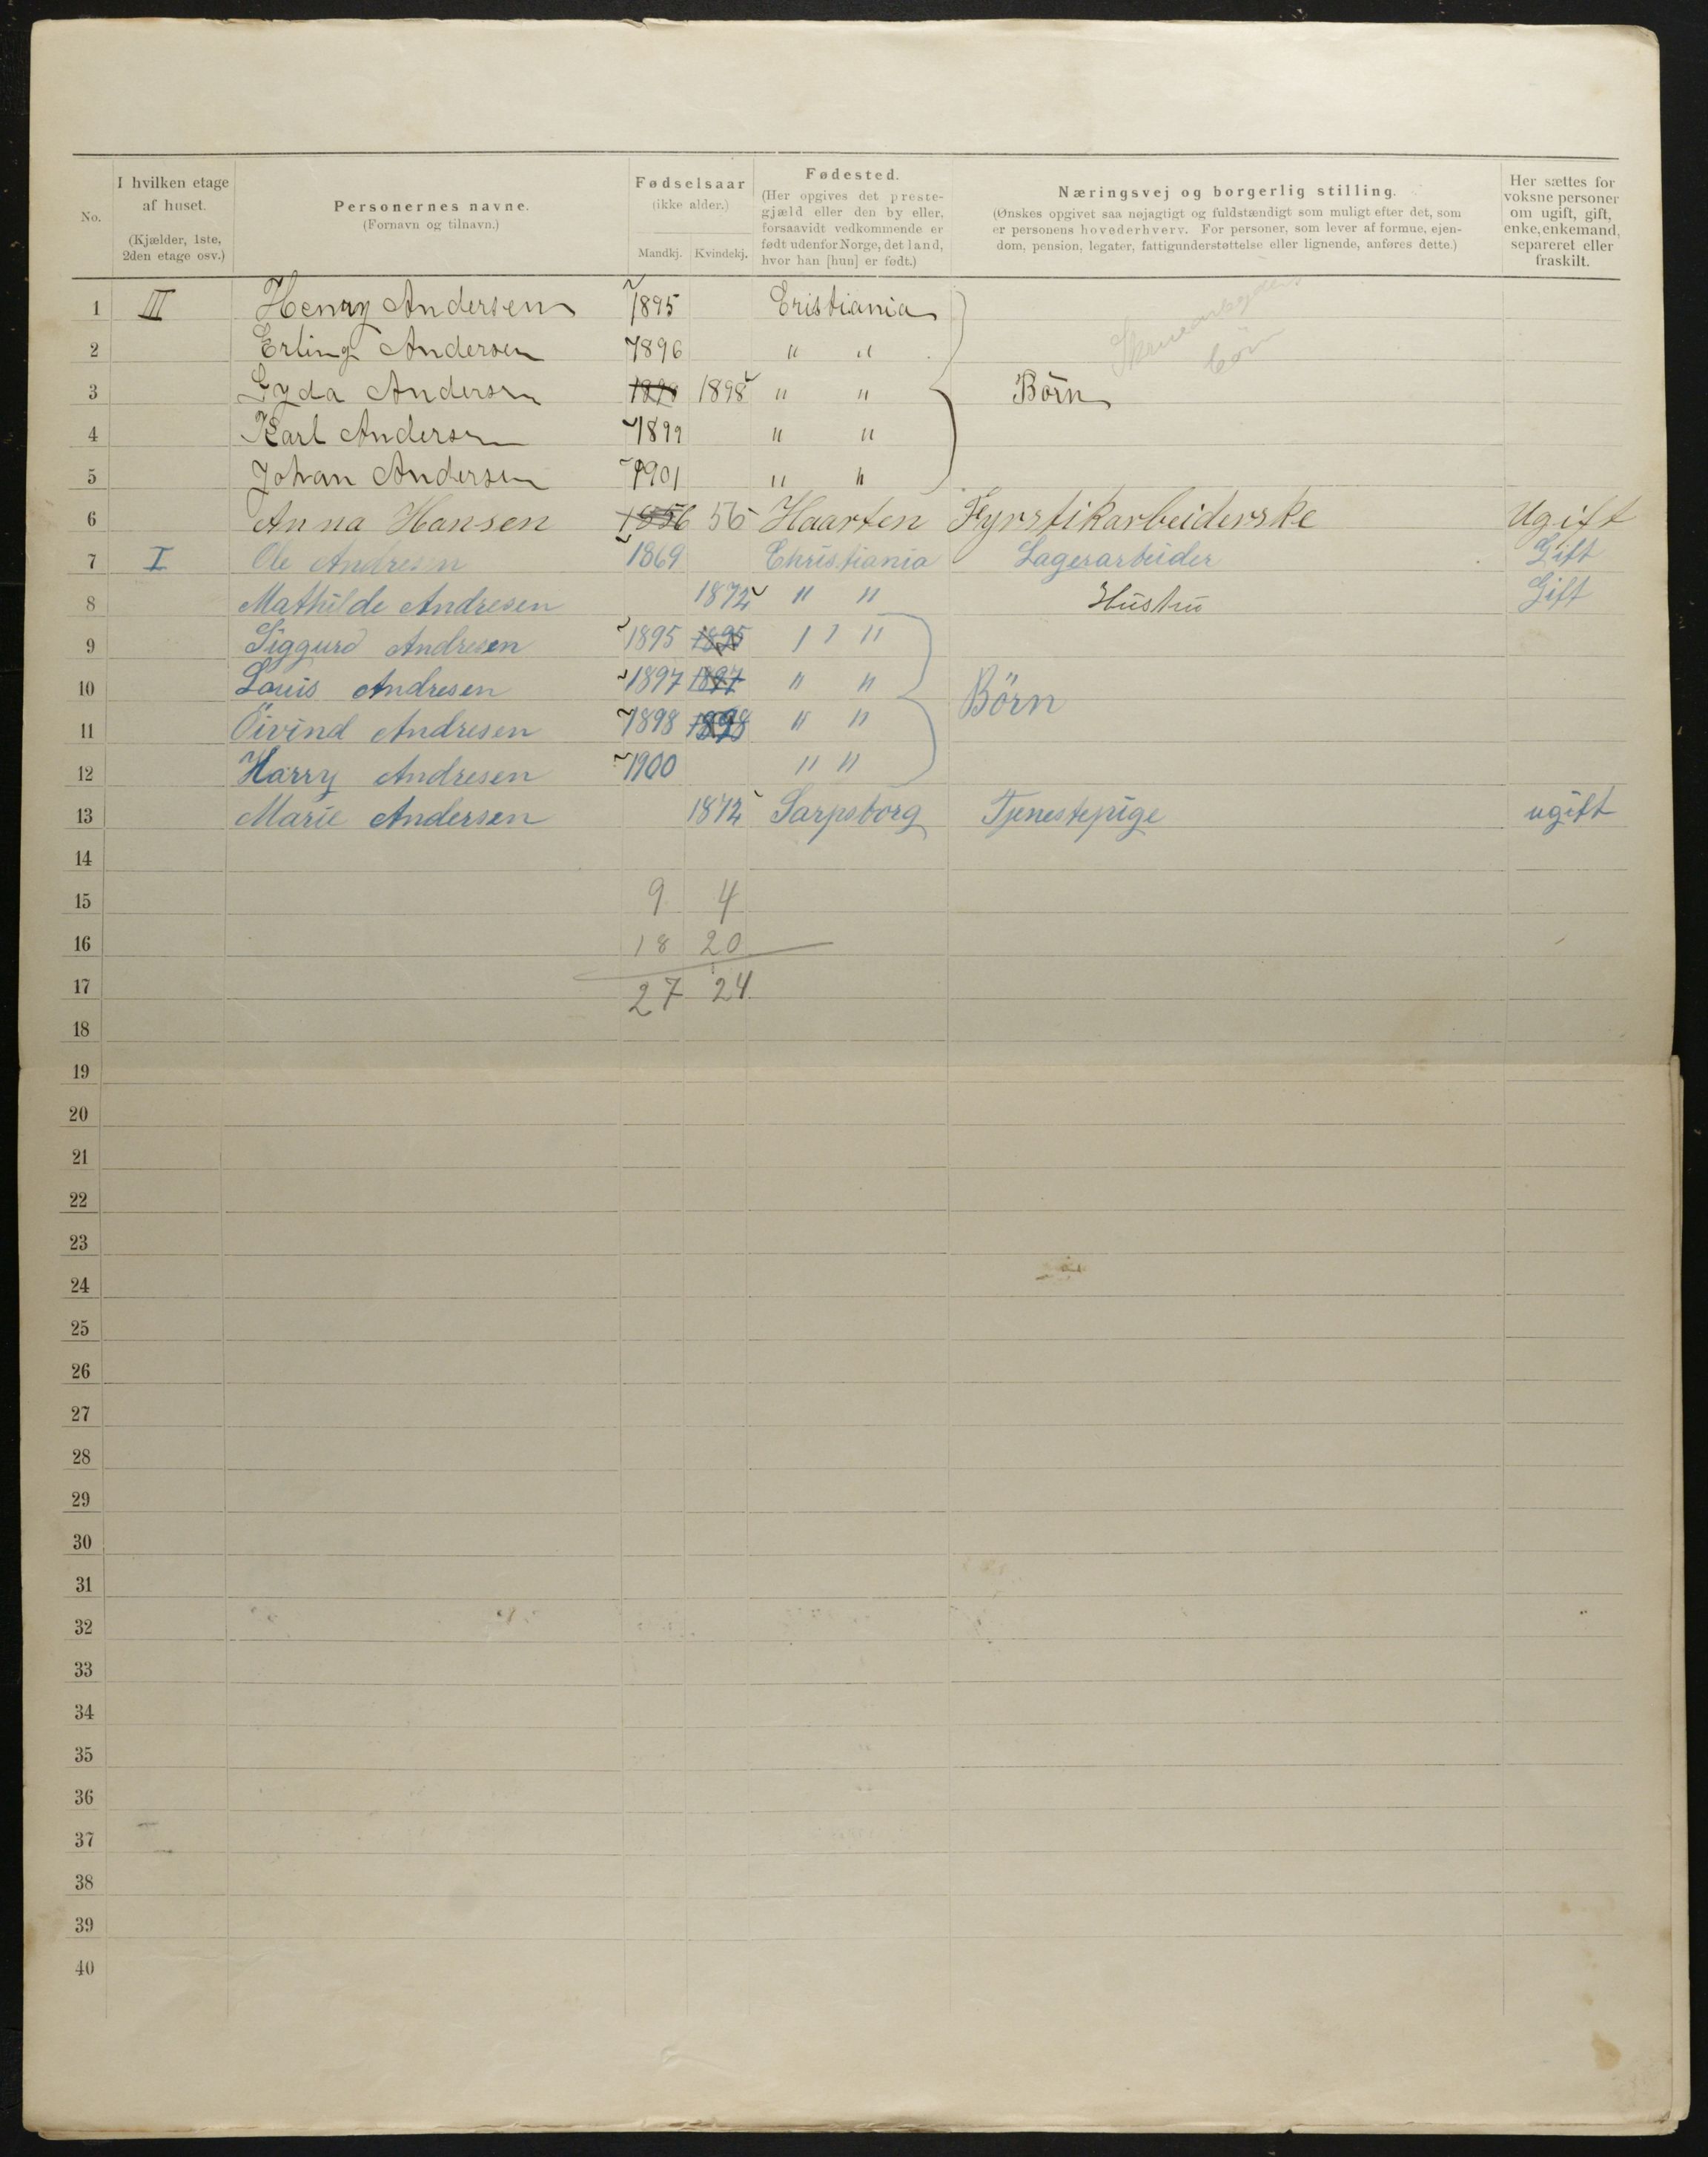 No. | I hvilken etage af huset. (Kjælder, 1ste, 2den etage osv.) | Personernes navne. (Fornavn og tilnavn.) | Fødselsaar (ikke alder.) Mandkj. Kvindekj. | Fødested. (Her opgives det prestegjæld eller den by eller, forsaavidt vedkommende er født udenfor Norge, det land, hvor han [hun] er født.) | Næringsvej og borgerlig stilling. (Ønskes opgivet saa nøjagtigt og fuldstændigt som muligt efter det, som er personens hovederhverv. For personer, som lever af formue, ejendom, pension, legater, fattigunderstøttelse eller lignende, anføres dette.) | Her sættes for voksne personer om ugift, gift, enke, enkemand, separeret eller fraskilt.
1 III Henry Andersen 1895 Cristiania
2 Erling Andersen 1896 " "
3 Lyda Andersen 1898 " " Börn
4 Karl Andersen 1899 " "
5 Johan Andersen 1901 " "
6 Anna Hansen 1856 56 Haarten Fyrstikarbeiderske Ugift
7 I Ole Andresen 1869 Christiania Lagerarbeider Gift
8 Mathilde Andresen 1872 " " Hustru Gift
9 Siggurd Andresen 1895 1895 " "
10 Louis Andresen 1897 1897 " " Börn
11 Öivind Andresen 1898 1898 " "
12 Harry Andresen 1900 " "
13 Marie Andersen 1872 Sarpsborg Tjenestepige ugift
14
15 9 4
16 18 20
17 27 24
18
19
20
21
22
23
24
25
26
27
28
29
30
31
32
33
34
35
36
37
38
39
40